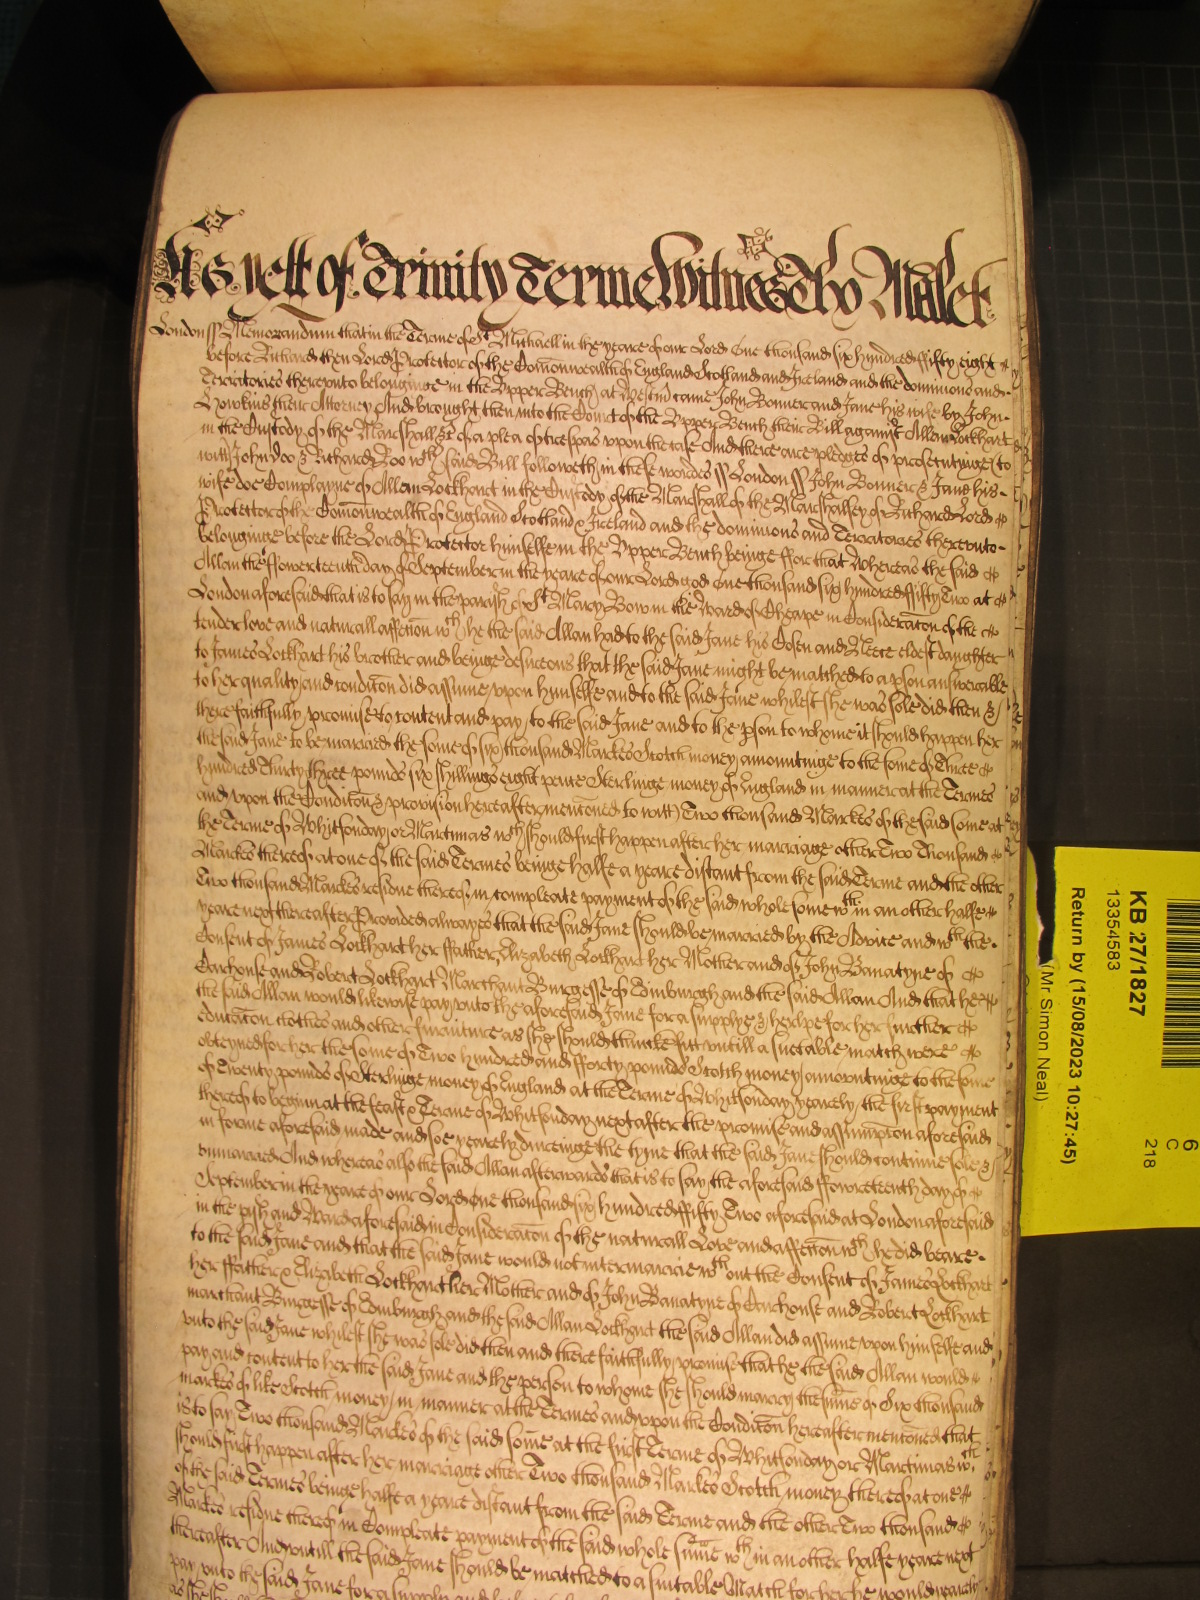 As yett of Trinity Terme Witnes Tho Malet
London ss Memorandum that in the Terme of St Michaell in the yeare of our Lord One thousand six hundred ffifty eight
before Richard then Lord Protector of the Comonwealth of England Scotland and Ireland and the dominions and
Territories thereunto belonginge in the Upper Bench at Westm came John Bonner and Jane his wife by John
Howkins their Attorney And brought then into the Court of the Upper Bench their Bill against Allan Lockhart
in the Custody of the Marshall &c of a plea of trespas upon the case And there are pledges of prosecutinge to
witt John Doo & Richard Roo wch said Bill followeth in these wordes ss London ss John Bonner & Jane his
wife doe Complayne of Allan Lockhart in the Custody of the Marshall of the Marshallsey of Richard Lord
Protector of the Comonwealth of England Scotland & Ireland and the dominions and Territories thereunto
belonginge before the Lord Protector himselfe in the Upper Bench beinge ffor that Whereas the said
Allan the ffowerteenth day of September in the yeare of our Lord god One thousand six hundred ffifty Two at
London aforesaid that is to say in the parish of St Mary Bow in the Ward of Cheape in Consideracon of the
tender love and naturall affection wch he the said Allan had to the said Jane his Cosen and Neece eldest daughter
to James Lockhart his brother and beinge desireous that the said Jane might be matched to a pson answerable
to her quality and condicon did assume upon himselfe and to the said Jane whilest she was sole did then &
there faithfully promise to content and pay to the said Jane and to the pson to whome it should happen her
the said Jane to be married the some of six thousand Markes Scotch money amountinge to the some of Three
hundred Thirty three pounds six shillings eight pence Sterlinge money of England in manner at the Termes
and upon the Condicon & provision hereafter mencioned to witt Two thousand Markes of the said some at
the Terme of Whitsonday or Martinmas wch should first happen after her marriage other Two Thousand
Markes thereof at one of the said Termes beinge halfe a yeare distant from the said Terme and the other
Two thousand Markes residue thereof in compleate payment of the said whole some wthin an other halfe
yeare next thereafter Provided alwayes that the said Jane should be married by the Advice and wth the
Consent of James Lockhart her ffather Elizabeth Lockhart her Mother and of John Banatyne of
Carhouse and Robert Lockhart Marchant Burgesse of Edinburgh and the said Allan And that he
the said Allan would likewise pay unto the aforesaid Jane for a supply & helpe for her further
educacon clothes and other furniture as she should thinke fitt untill a suetable match were
obteyned for her the some of Two hundred and fforty pounds Scotch money amountinge to the some
of Twenty pounds of Sterlinge money of England at the Terme of Whitsonday yearely the first payment
thereof to begin at the feast & Terme of Whitsonday next after the promise and assumption aforesaid
in forme aforesaid made and soe yearely dureinge the tyme that the said Jane should continue sole &
unmarried And whereas also the said Allan afterwards that is to say the aforesaid ffowreteenth day of
September in the yeare of our Lord One thousand six hundred ffifty Two aforesaid at London aforesaid
in the pish and Ward aforesaid in Consideracon of the naturall Love and affection wch he did beare
to the said Jane and that the said Jane would not intermarrie wthout the Consent of James Lockhart
her ffather & Elizabeth Lockhart her Mother and of John Banatyne of Carhouse and Robert Lockhart
marchant Burgesse of Edinburgh and the said Allan Lockhart the said Allan did assume upon himselfe and
unto the said Jane whilest she was sole did then and there faithfully promise that he the said Allan would
pay and content to her the said Jane and the person to whome she should marry the sume of Six thousand
markes of like Scotch money in manner at the Termes and upon the Condicon hereafter mencioned that
is to say Two thousand Markes of the said some at the first Terme of Whitsonday or Martinmas wch
should first happen after her marriage other Two thousand Markes Scotch money thereof at one
of the said Termes beinge halfe a yeare distant from the said Terme and the other Two thousand
Markes residue thereof in Compleate payment of the said whole sume wthin an other halfe yeare next
thereafter And untill the said Jane should be matched to a suitable Match for her he would yearely
pay unto the said Jane for a supply and
KB 27/1827
13354583
Return by (15/08/2023 10:27:45)
(Mr Simon Neal)
6
C
218